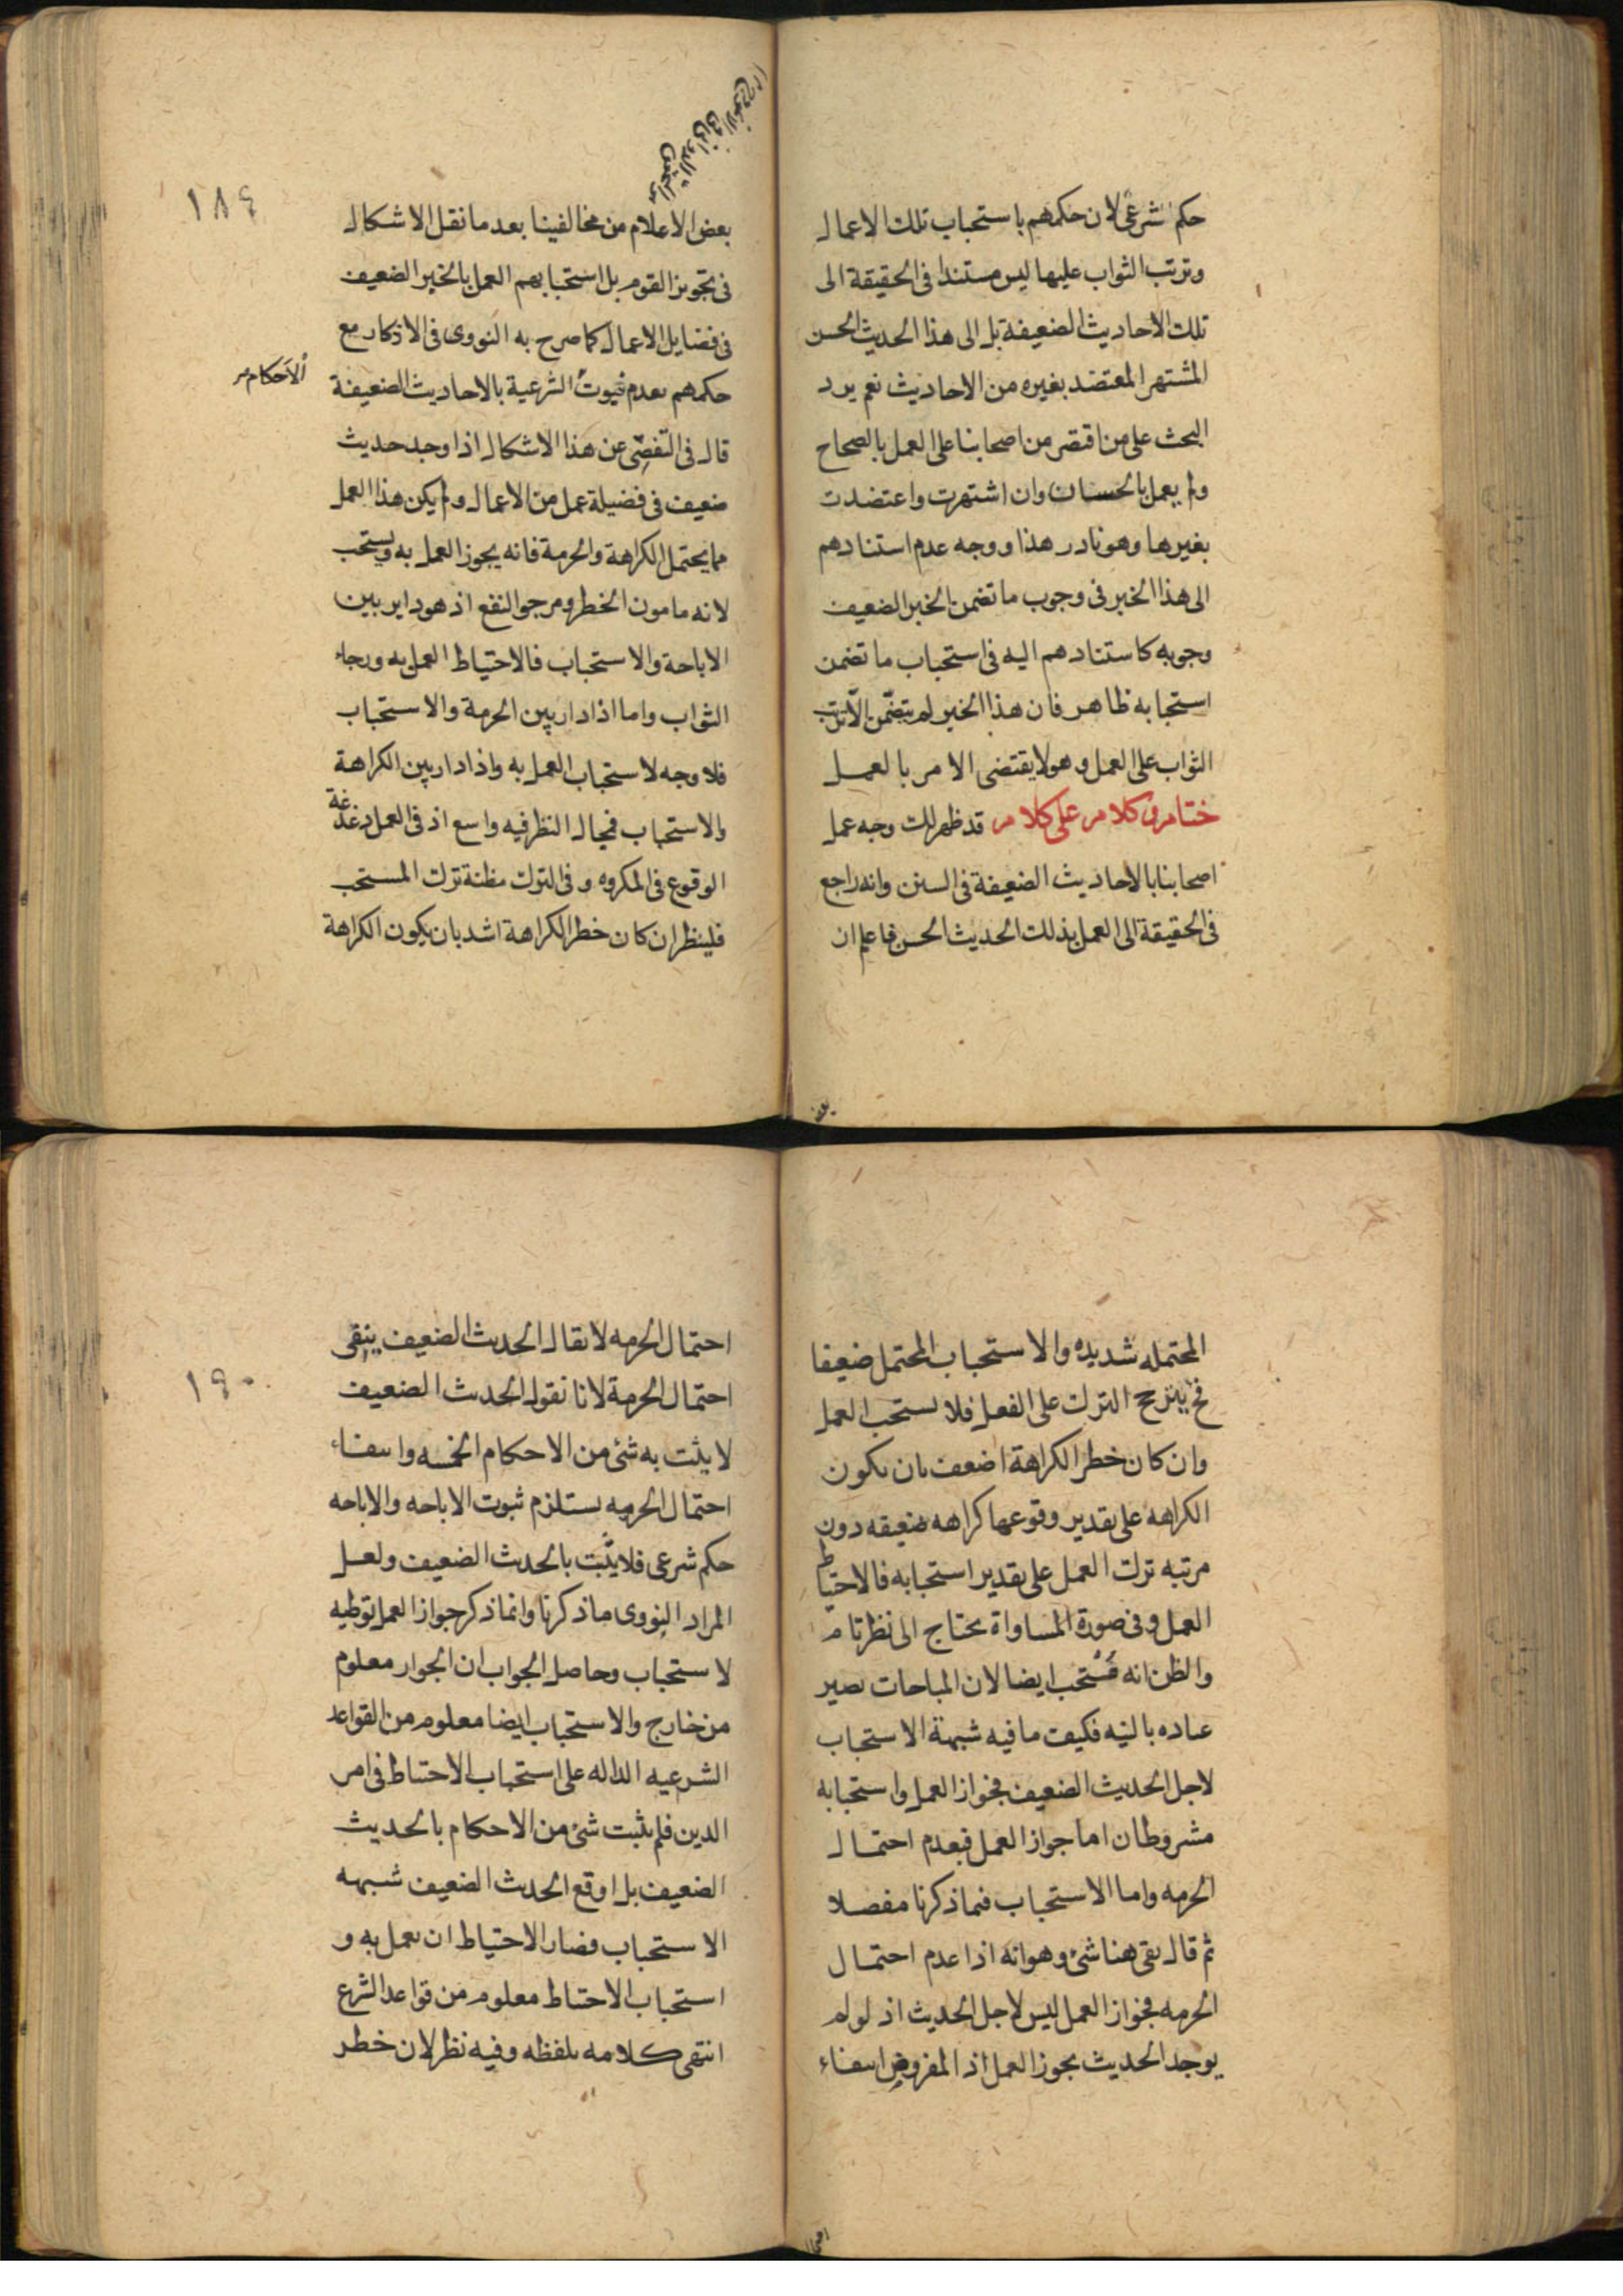 حكم شرعى لان حكمهم باستحباب تلك الاعمال
وترتب الثواب عليها ليس مستندا فى الحقيقة الى
تلك الاحاديث الضعيفة بل الى هذا الحديث الحسن
المشتهر المعتضد بغيره من الاحاديث نعم يرد
البحث على من اقتصر من اصحابنا على العمل بالصحاح
ولم يعمل بالحسان وان اشتهرت واعتضدت
بغيرها وهو نادر هذا ووجه عدم استنادهم
الى هذا الخبر فى وجوب ما تضمن الخبر الضعيف
وجوبه كاستنادهم اليه فى استحباب ما تضمن
استحبابه ظاهر فان هذا الخبر لم يتضمّن الّا ترتب
الثواب على العمل وهو لا يقتضى الامر بالعمل
ختام فى كلام على كلام قد ظهر لك وجه عمل
اصحابنا بالاحاديث الضعيفة فى السنن وانه راجع
فى الحقيقة الى العمل بذلك الحديث الحسن فاعلم ان
بعض
١٨٩
بعض الاعلام من مخالفينا بعد ما نقل الاشكال
فى تجويز القوم بل استحبابهم العمل بالخبر الضعيف
فى فضايل الاعمال كما صرح به النووى فى الاذكار مع
حكمهم بعدم ثبوت الشرعية بالاحاديث الضعيفة
الاحكام
قال فى التفصّى عن هذا الاشكال اذا وجد حديث
ضعيف فى فضيلة عمل من الاعمال ولم يكن هذا العمل
مما يحتمل الكراهة والحرمة فانه يجوز العمل به ويستحب
لانه مامون الخطر ومرجو النفع اذ هو داير بين
الاباحة والاستحباب فالاحتياط العمل به ورجاء
الثواب واما اذا دار بين الحرمة والاستحباب
فلا وجه لاستحباب العمل به واذا دار بين الكراهة
والاستحباب فمجال النظر فيه واسع اذ فى العمل دغدغة
الوقوع فى المكروه وفى الترك مظنة ترك المستحب
فلينظر ان كان خطر الكراهة اشد بان يكون الكراهة
المحتمله شديده والاستحباب المحتمل ضعيفا
فح يترجح الترك على الفعل فلا يستحب العمل
وان كان خطر الكراهة اضعف بان يكون
الكراهه على تقدير وقوعها كراهه ضعيفه دون
مرتبه ترك العمل على تقدير استحبابه فالاحتياط
العمل وفى صورة المساواة يحتاج الى نظر تام
والظن انه مستحب ايضا لان المباحات تصير
عباده بالنيه فكيف ما فيه شبهة الاستحباب
لاجل الحديث الضعيف فجواز العمل واستحبابه
مشروطان اما جواز العمل فبعدم احتمال
الحرمه واما الاستحباب فبما ذكرنا مفصلا
ثم قال بقى هنا شئ وهو انه اذا عدم احتمال
الحرمه فجواز العمل ليس لاجل الحديث اذ لو لم
يوجد الحديث يجوز العمل اذ المفروض انتفاء
١٩٠
احتمال الحرمه لا يقال الحديث الضعيف ينفى
احتمال الحرمة لانا نقول الحديث الضعيف
لا يثبت به شئ من الاحكام الخمسه وانتفاء
احتمال الحرمه يستلزم ثبوت الاباحه والاباحه
حكم شرعى فلا يثبت بالحديث الضعيف ولعل
المراد النووى ما ذكرنا وانما ذكر جواز العمل توطيه
لاستحباب وحاصل الجواب ان الجواز معلوم
من خارج والاستحباب ايضا معلوم من القواعد
الشرعيه الداله على استحباب الاحتياط فى امر
الدين فلم يثبت شئ من الاحكام بالحديث
الضعيف بل اوقع الحديث الضعيف شبهه
الاستحباب فصار الاحتياط ان يعمل به و
استحباب الاحتياط معلوم من قواعد الشرع
انتهى كلامه بلفظه وفيه نظر لان خطر